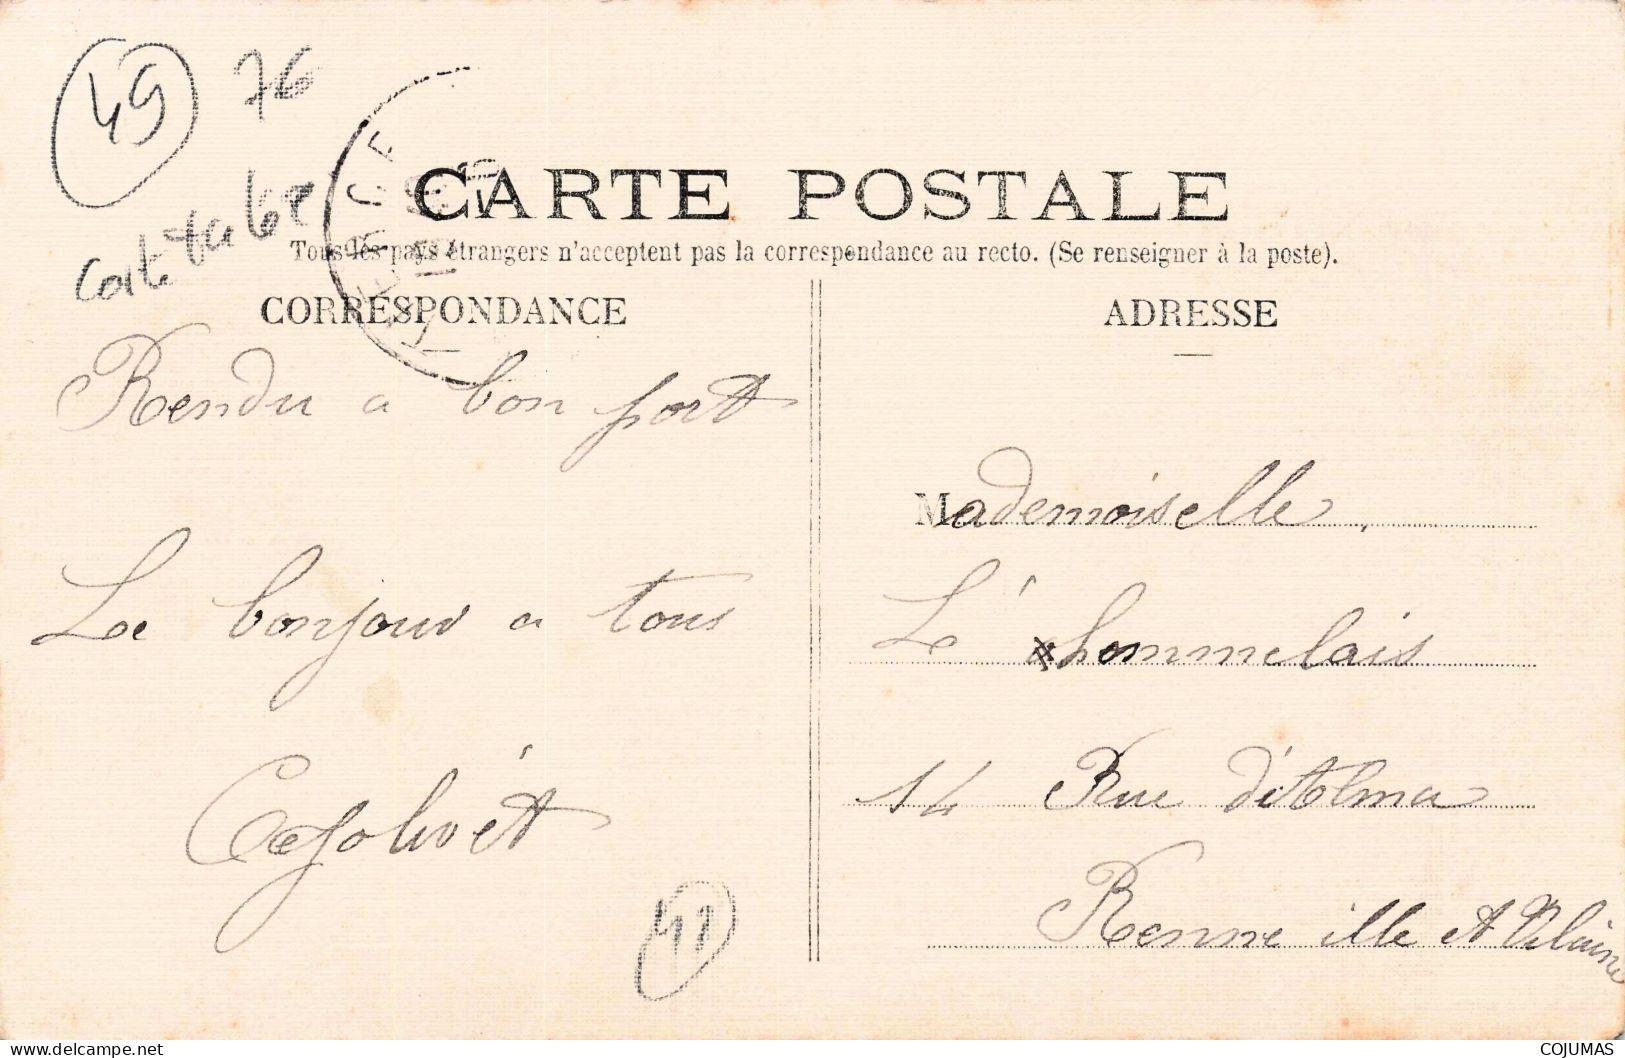 49 76
CARTE POSTALE
Tous les pays étrangers n'acceptent pas la correspondance au recto. (Se renseigner à la poste).
CORRESPONDANCE
ADRESSE
Rendu a bon port
Le bonjour a tous
Mademoiselle
L' hommelais
14 Rue d'Alma
Renne ille et Vilaine
41
COJUMAS